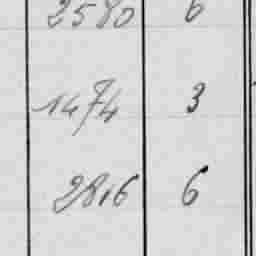 2580 6
1474 3
2816 6